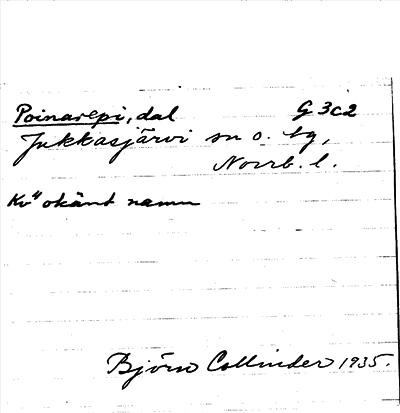 Poinarepi, dal G 3c2
Jukkasjärvi sn o. tg,
Norrb. l.
Kv" okänt namn
Björn Collinder 1935.